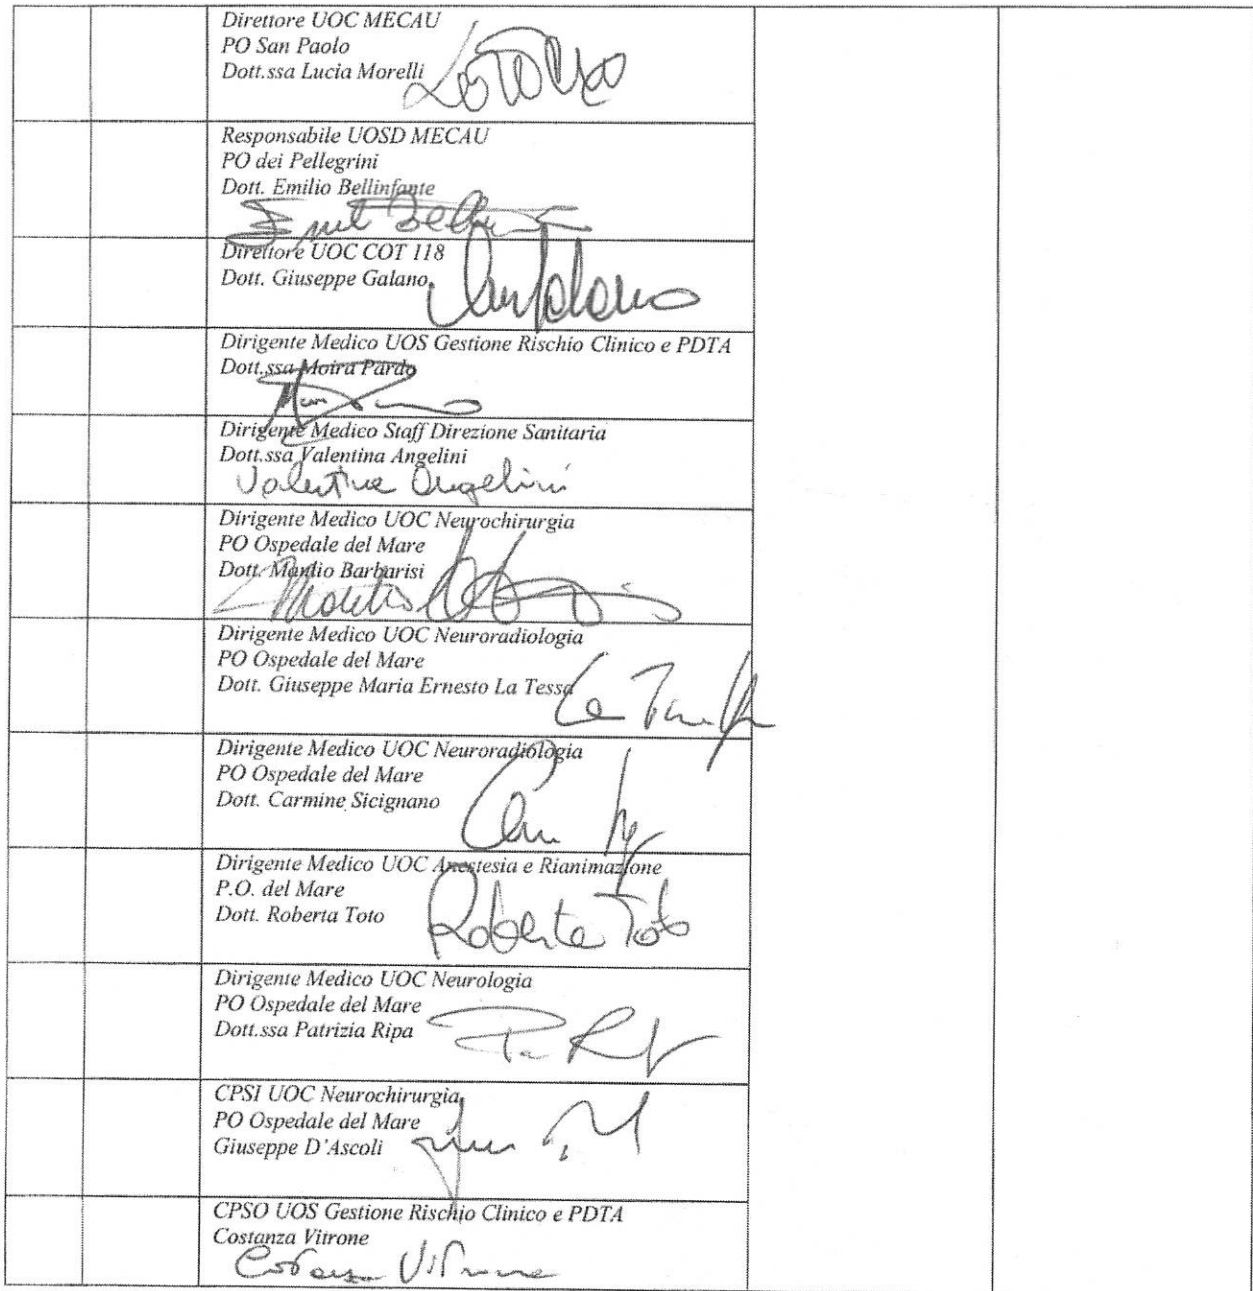 Direttore UOC MECAU
PO San Paolo
Dott.ssa Lucia Morelli
Responsabile UOSD MECAU
PO dei Pellegrini
Dott. Emilio Bellinfante
Direttore UOC COT 118
Dott. Giuseppe Galano
Dirigente Medico UOS Gestione Rischio Clinico e PDTA
Dott.ssa Moira Pardo
Dirigente Medico Staff Direzione Sanitaria
Dott.ssa Valentina Angelini
Valentina Angelini
Dirigente Medico UOC Neurochirurgia
PO Ospedale del Mare
Dott. Manlio Barbarisi
Dirigente Medico UOC Neuroradiologia
PO Ospedale del Mare
Dott. Giuseppe Maria Ernesto La Tessa
Dirigente Medico UOC Neuroradiologia
PO Ospedale del Mare
Dott. Carmine Sicignano
Dirigente Medico UOC Anestesia e Rianimazione
P.O. del Mare
Dott. Roberta Toto
Roberta Toto
Dirigente Medico UOC Neurologia
PO Ospedale del Mare
Dott.ssa Patrizia Ripa
CPSI UOC Neurochirurgia
PO Ospedale del Mare
Giuseppe D'Ascoli
CPSO UOS Gestione Rischio Clinico e PDTA
Costanza Vitrone
Costanza Vitrone